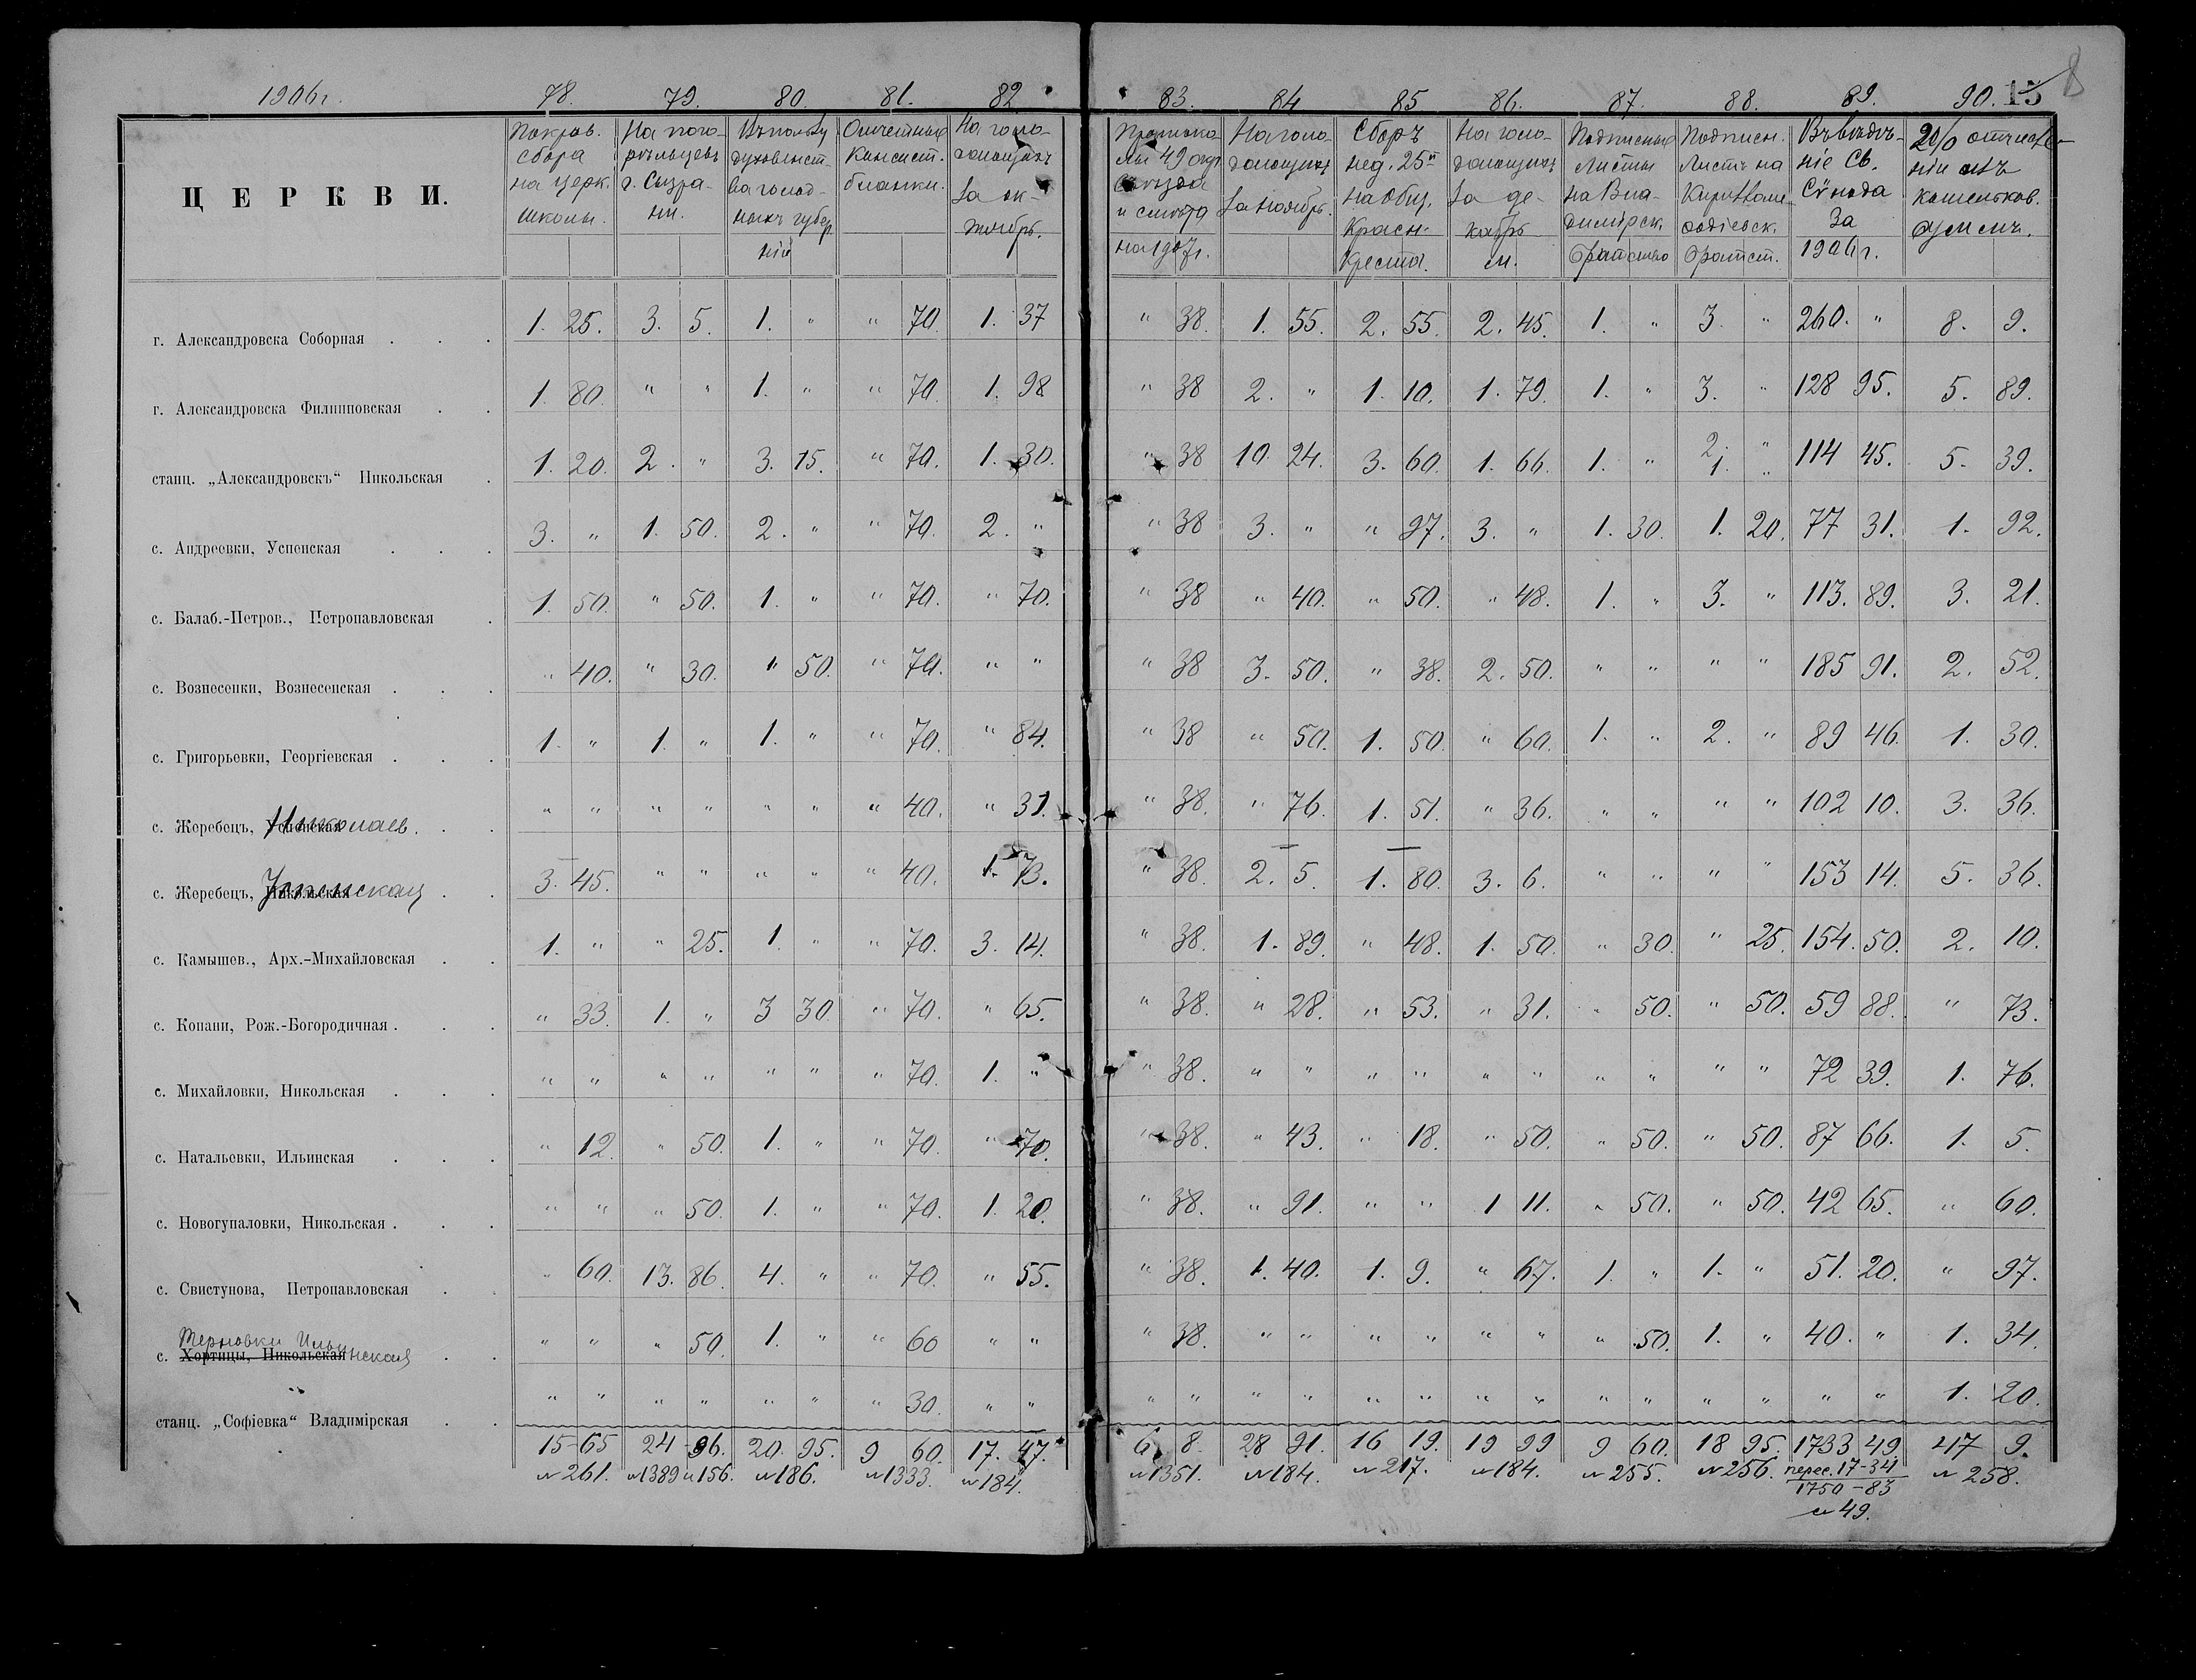 1906г. 78. 79. 80. 81. 82 83. 84 85 86. 87. 88. 89. 90. 15 8
ЦЕРКВИ.
Покров. сбора на церк. школы.
На пого- рѣльцевъ г. Сызра- ни.
Въ пользу духовенст- ва голод- ныхъ губер ній
Отчетные Консист. бланки.
На голо- дающихъ за ок- тябрь.
49 на 1907г.
На голо- дающихъ за ноябрь.
Сборъ нед. 25й на Общ. Красн. Креста.
На голо- дающихъ за де- кабрь
Подписные Листы на Вла- димірск. братство
Подписн. Листъ на братст.
Въ вѣдѣ- ніе Св. Сѵнода за 1906г.
2% отчисле- ніи отъ кошельков. сумм.
г. Александровска Соборная . . . 1. 25. 3. 5. 1. " " 70 1. 37 " 38. 1. 55. 2. 55. 2. 45. 1. " 3. " 260. " 8. 9.
г. Александровска Филипповская . . 1. 80. " " 1. " " 70 1. 98 " 38 2. " 1. 10. 1. 79. 1. " 3. " 128 95. 5. 89.
станц. „Александровскъ“ Никольская . 1. 20. 2. " 3. 15. " 70. 1. 30. " 38 10. 24. 3. 60. 1. 66. 1. " 2. " 1. " 114 45. 5. 39.
с. Андреевки, Успенская . . . 3. " 1. 50. 2. " " 70. 2. " " 38 3. " " 97. 3. " 1. 30. 1. 20. 77 31. 1. 92.
с. Балаб.-Петров., Петропавловская . 1. 50. " 50. 1. " " 70. " 70. " 38 " 40. " 50. " 48. 1. " 3. " 113. 89. 3. 21.
с. Вознесенки, Вознесенская . . . " 40. " 30. " 50. " 70. " " " 38 3. 50. " 38. 2. 50. " " " " 185 91. 2. 52.
с. Григорьевки, Георгіевская . . . 1. " 1. " 1. " " 70. " 84. " 38 " 50. 1. 50. " 60. 1. " 2. " 89 46. 1. 30.
с. Жеребецъ, Успенская Николаев. . . " " " " " " " 40. " 31. " 38. " 76. 1. 51. " 36. " " " " 102 10. 3. 36.
с. Жеребецъ, Никольская Успенская . . 3. 45. " " " " " 40. 1. 73. " 38. 2. 5. 1. 80. 3. 6. " " " " 153 14. 5. 36.
с. Камышев., Арх.-Михайловская . . 1. " " 25. 1. " " 70. 3. 14. " 38. 1. 89. " 48. 1. 50. " 30. " 25. 154. 50. 2. 10.
с. Копани, Рож.-Богородичная . . . " 33. 1. " 3 30. " 70. " 65. " 38. " 28. " 53. " 31. " 50. " 50. 59 88. " 73.
с. Михайловки, Никольская . . . " " " " " " " 70. 1. " " 38. " " " " " " " " " " 72 39. 1. 76.
с. Натальевки, Ильинская . . . " 12. " 50. 1. " " 70. " 70. " 38. " 43. " 18. " 50. " 50. " 50. 87 66. 1. 5.
с. Новогупаловки, Никольская . . . " " " 50. 1. " " 70. 1. 20. " 38. " 91. " " 1 11. " 50. " 50. 42 65. " 60.
с. Свистунова, Петропавловская . . " 60. 13. 86. 4. " " 70. " 55. " 38. 1. 40. 1. 9. " 67. 1. " 1. " 51. 20. " 97.
Терновки Ильинская
с. Хортицы, Никольская . . " " " 50. 1. " " 60 " " " 38. " " " " " " " 50. 1. " 40. " 1. 34.
станц. „Софіевка“ Владимірская . . " " " " " " " 30. " " " " " " " " " " " " " " " " 1. 20.
15-65 24-96. 20. 95. 9 60. 17. 47. 6 8. 28 91. 16 19. 19 99 9 60. 18 95. 1733 49 47 9.
№261. №1389 и 156. №186. №1333. №184. №1351. №184. №217. №184. №255. №256. перес. 17-34 №258.
1750-83
№49.